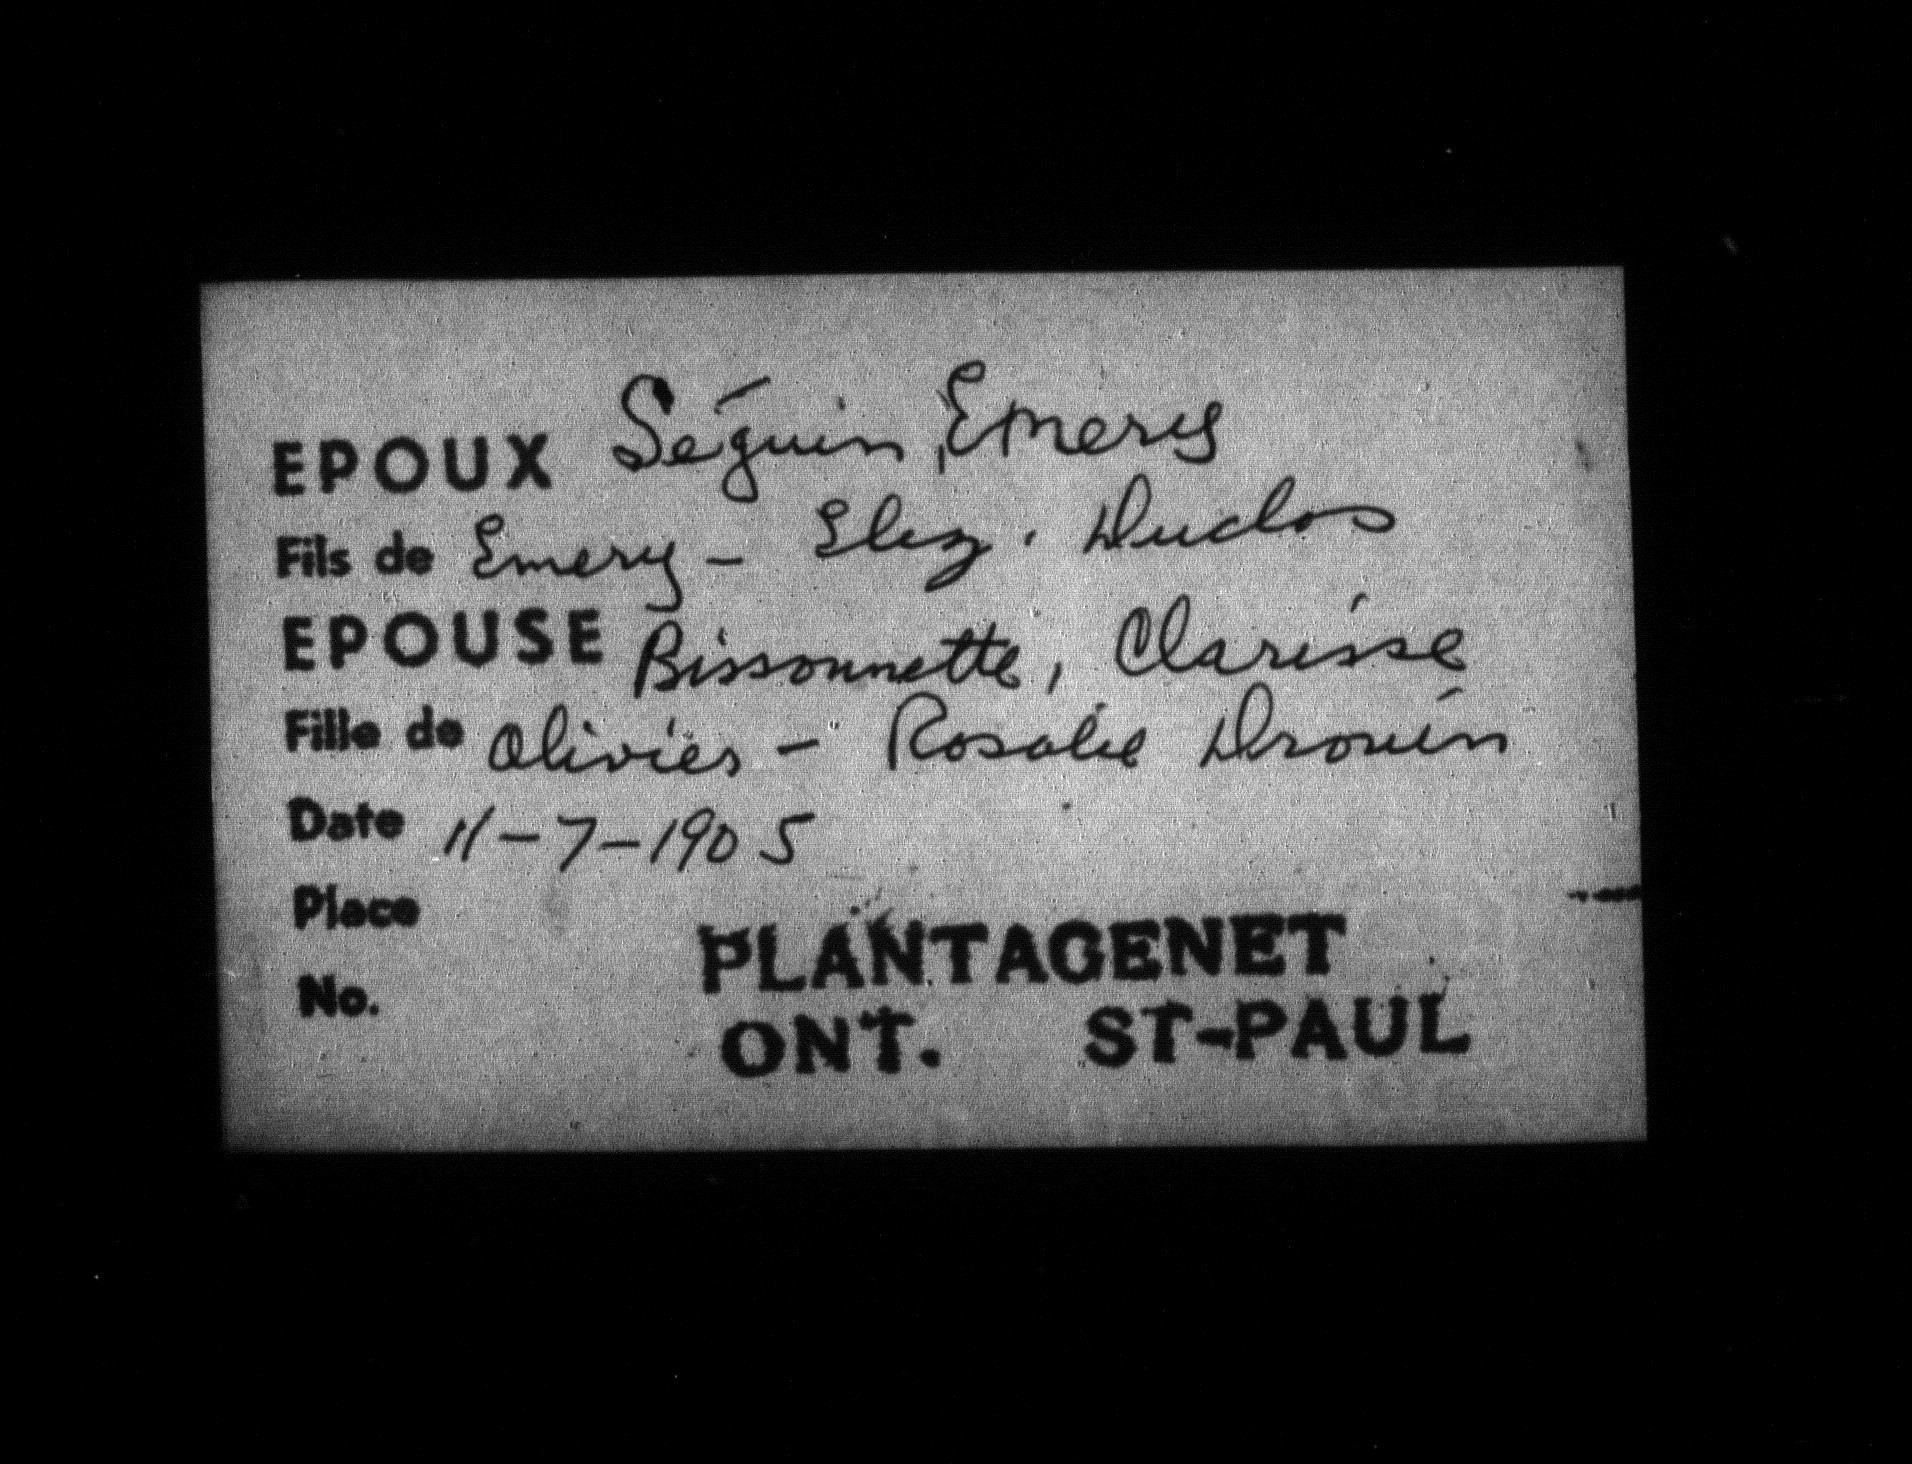 EPOUX Séguin, Emery
Fils de Emery - Eliz. Duclos
EPOUSE Bissonnette, Clarisse
Fille de Olivier - Rosalie Drouin
Date 11-7-1905
Place
PLANTAGENET
No.
ONT. ST-PAUL